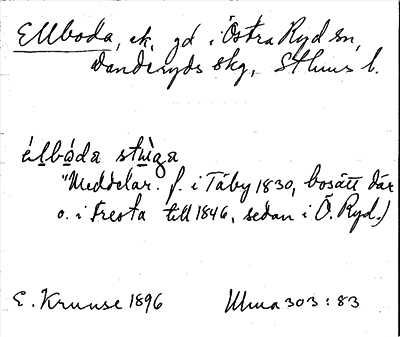 Ellboda, ek, gd i Östra Ryd sn,
Danderyds skg, Sthlms l.
élboda stuga
"Meddelar. f. i Täby 1830, bosatt där
o. i Fresta till 1846, sedan i Ö. Ryd.)
E. Kruuse 1896 Ulma 303:83